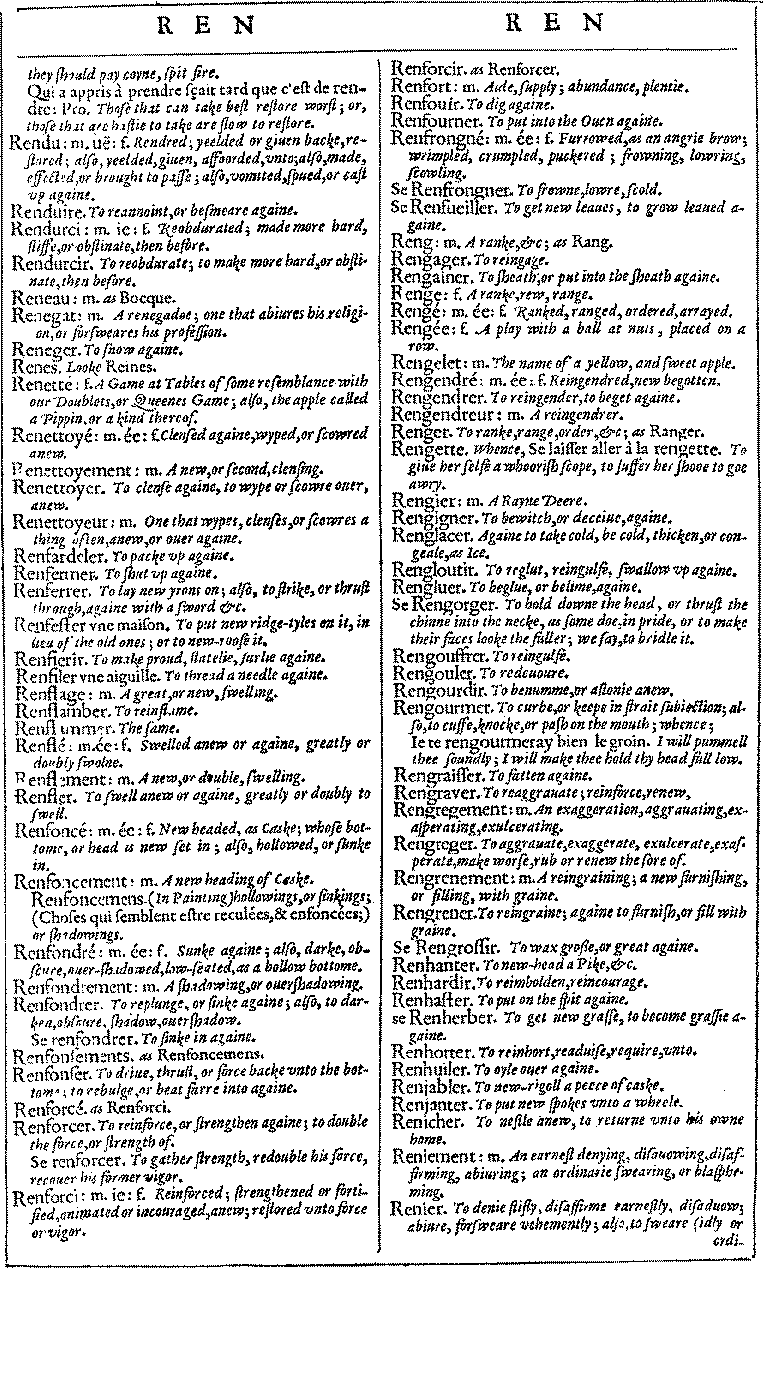 R E N
R E N
they should pay coyne, spit fire.
Qui a appris à prendre sçait tard que c'est de ren-
dre: Pro. Those that can take best restore worst; or,
those that are hastie to take are slow to restore.
Rendu: m. uë: f. Rendred; yeelded or giuen backe, re-
stored; also, yeelded, giuen, affoorded, vnto; also, made,
effected, or brought to passe; also, vomited, spued, or cast
vp againe.
Renduire. To reannoint, or besmeare againe.
Rendurci: m. ie: f. Reobdurated; made more hard,
stiffe, or obstinate, then before.
Rendurcir. To reobdurate; to make more hard, or obsti-
nate, then before.
Reneau: m. as Bocque.
Renegat: m. A renegadoe; one that abiures his religi-
on, or forsweares his profession.
Reneger. To snow againe.
Renes. Looke Reines.
Renette: f. A Game at Tables of some resemblance with
our Doublets, or Queenes Game; also, the apple called
a Pippin, or a kind thereof.
Renettoyé: m. ée: f. Clensed againe, wyped, or scowred
anew.
Renettoyement: m. A new, or second, clensing.
Renettoyer. To clense againe, to wype or scowre ouer,
anew.
Renettoyeur: m. One that wypes, clenses, or scowres a
thing often, anew, or ouer againe.
Renfardeler. To packe vp againe.
Renfermer. To shut vp againe.
Renferrer. To lay new yrons on; also, to strike, or thrust
through, againe with a sword &c.
Renfester vne maison. To put new ridge-tyles on it, in
lieu of the old ones; or to new-roofe it.
Renfierir. To make proud, statelie, surlie againe.
Renfiler vne aiguille. To thread a needle againe.
Renflage: m. A great, or new, swelling.
Renflamber. To reinflame.
Renflammer. The same.
Renflé: m. ée: f. Swelled anew or againe, greatly or
doubly swolne.
Renflement: m. A new, or double, swelling.
Renfler. To swell anew or againe, greatly or doubly to
swell.
Renfoncé: m. ée: f. New headed, as Caske; whose bot-
tome, or head is new set in; also, hollowed, or sunke
in.
Renfoncement: m. A new heading of Caske.
Renfoncemens. (In Painting) hollowings, or sinkings;
(Choses qui semblent estre reculées, & enfoncées;)
or shadowings.
Renfondré: m. ée: f. Sunke againe; also, darke, ob-
scure, ouer-shadowed, low-seated, as a hollow bottome.
Renfondrement: m. A shadowing, or ouershadowing.
Renfondrer. To replunge, or sinke againe; also, to dar-
ken, obscure, shadow, ouershadow.
Se renfondrer. To sinke in againe.
Renfonsements. as Renfoncemens.
Renfonser. To driue, thrust, or force backe vnto the bot-
tome; to rebulge, or beat farre into againe.
Renforcé. as Renforci.
Renforcer. To reinforce, or strengthen againe; to double
the force, or strength of.
Se renforcer. To gather strength, redouble his force,
recouer his former vigor.
Renforci: m. ie: f. Reinforced; strengthened or forti-
fied, animated or incouraged, anew; restored vnto force
or vigor.
Renforcir. as Renforcer.
Renfort: m. Aide, supply; abundance, plentie.
Renfouir. To dig againe.
Renfourner. To put into the Ouen againe.
Renfrongné: m. ée: f. Furrowed, as an angrie brow;
wrimpled, crumpled, puckered; frowning, lowring,
scowling.
Se Renfrongner. To frowne, lowre, scold.
Se Renfueiller. To get new leaues, to grow leaued a-
gaine.
Reng: m. A ranke, &c; as Rang.
Rengager. To reingage.
Rengainer. To sheath, or put into the sheath againe.
Renge: f. A ranke, rew, range.
Rengé: m. ée: f. Ranked, ranged, ordered, arrayed.
Rengée: f. A play with a ball at nuts, placed on a
row.
Rengelet: m. The name of a yellow, and sweet apple.
Rengendré: m. ée: f. Reingendred, new begotten.
Rengendrer. To reingender, to beget againe.
Rengendreur: m. A reingendrer.
Renger. To ranke, range, order, &c; as Ranger.
Rengette. Whence, Se laisser aller à la rengette. To
giue her selfe a whoorish scope, to suffer her shooe to goe
awry.
Rengier: m. A Rayne Deere.
Rengigner. To bewitch, or deceiue, againe.
Renglacer. Againe to take cold, be cold, thicken, or con-
geale, as Ice.
Rengloutir. To reglut, reingulfe, swallow vp againe.
Rengluer. To beglue, or belime, againe.
Se Rengorger. To hold downe the head, or thrust the
chinne into the necke, as some doe, in pride, or to make
their faces looke the fuller; we say, to bridle it.
Rengouffrer. To reingulfe.
Rengouler. To redeuoure.
Rengourdir. To benumme, or astonie anew.
Rengourmer. To curbe, or keepe in strait subiection; al-
so, to cuffe, knocke, or pash on the mouth; whence;
Ie te rengourmeray bien le groin. I will pummell
thee soundly; I will make thee hold thy head full low.
Rengraisser. To fatten againe.
Rengraver. To reaggrauate; reinforce, renew.
Rengregement: m. An exaggeration, aggrauating, ex-
asperating, exulcerating.
Rengreger. To aggrauate, exaggerate, exulcerate, exas-
perate, make worse, rub or renew the sore of.
Rengrenement: m. A reingraining; a new furnishing,
or filling, with graine.
Rengrener. To reingraine; againe to furnish, or fill with
graine.
Se Rengrossir. To wax grosse, or great againe.
Renhanter. To new-head a Pike, &c.
Renhardir. To reimbolden, reincourage.
Renhaster. To put on the spit againe.
se Renherber. To get new grasse, to become grassie a-
gaine.
Renhorter. To reinhort, readuise, require, vnto.
Renhuiler. To oyle ouer againe.
Renjabler. To new-rigoll a peece of caske.
Renjanter. To put new spokes vnto a wheele.
Renicher. To nestle anew, to returne vnto his owne
home.
Reniement: m. An earnest denying, disauowing, disaf-
firming, abiuring; an ordinarie swearing, or blasphe-
ming.
Renier. To denie stifly, disaffirme earnestly, disaduow;
abiure, forsweare vehemently; also, to sweare (idly or
ordi-